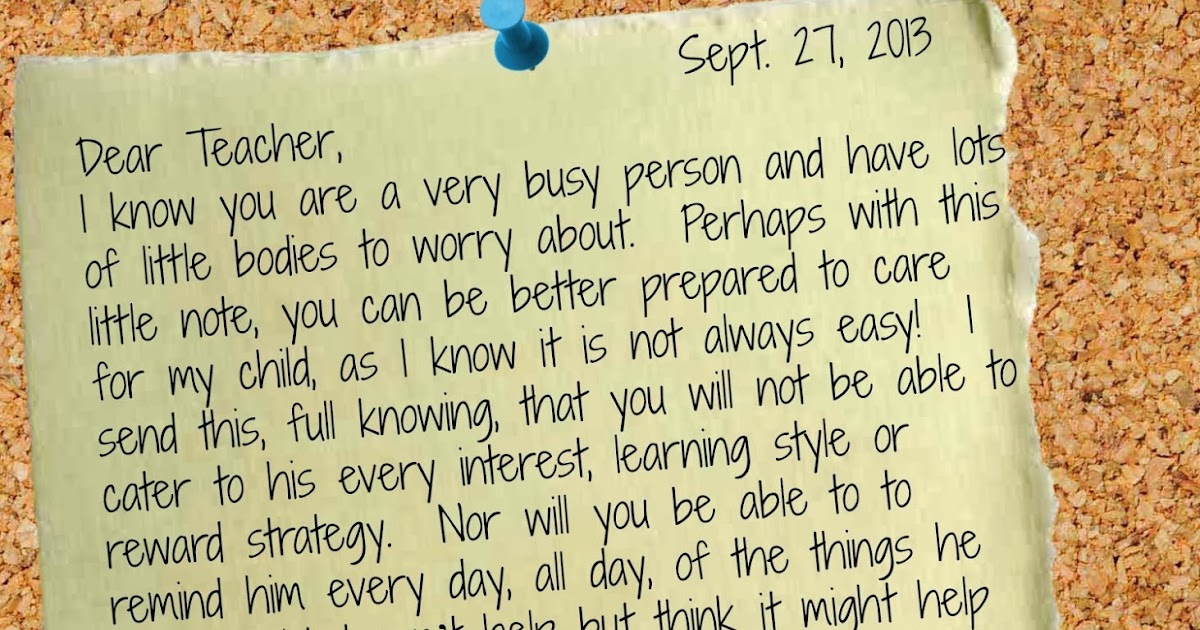 Sept. 27, 2013
Dear Teacher,
I know you are a very busy person and have lots
of little bodies to worry about. Perhaps with this
little note, you can be better prepared to care
for my child, as I know it is not always easy! I
send this, full knowing, that you will not be able to
cater to his every interest, learning style or
reward strategy. Nor will you be able to to
remind him every day, all day, of the things he
help but think it might help